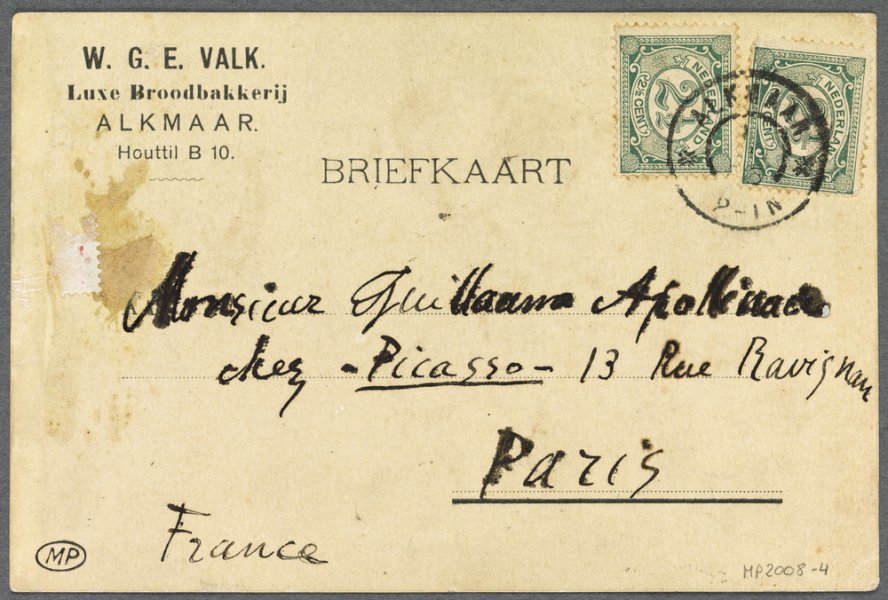 W. G. E. VALK.
Luxe Broodbakkerij
ALKMAAR.
Houttil B 10.
BRIEFKAART
NEDERLAND
2½ CENT
NEDERLAND
2½ CENT
ALKMAAR
2-1N
Monsieur Guillaume Apollinaire
chez - Picasso - 13 Rue Ravignan
Paris
France
MP
MP2008-4